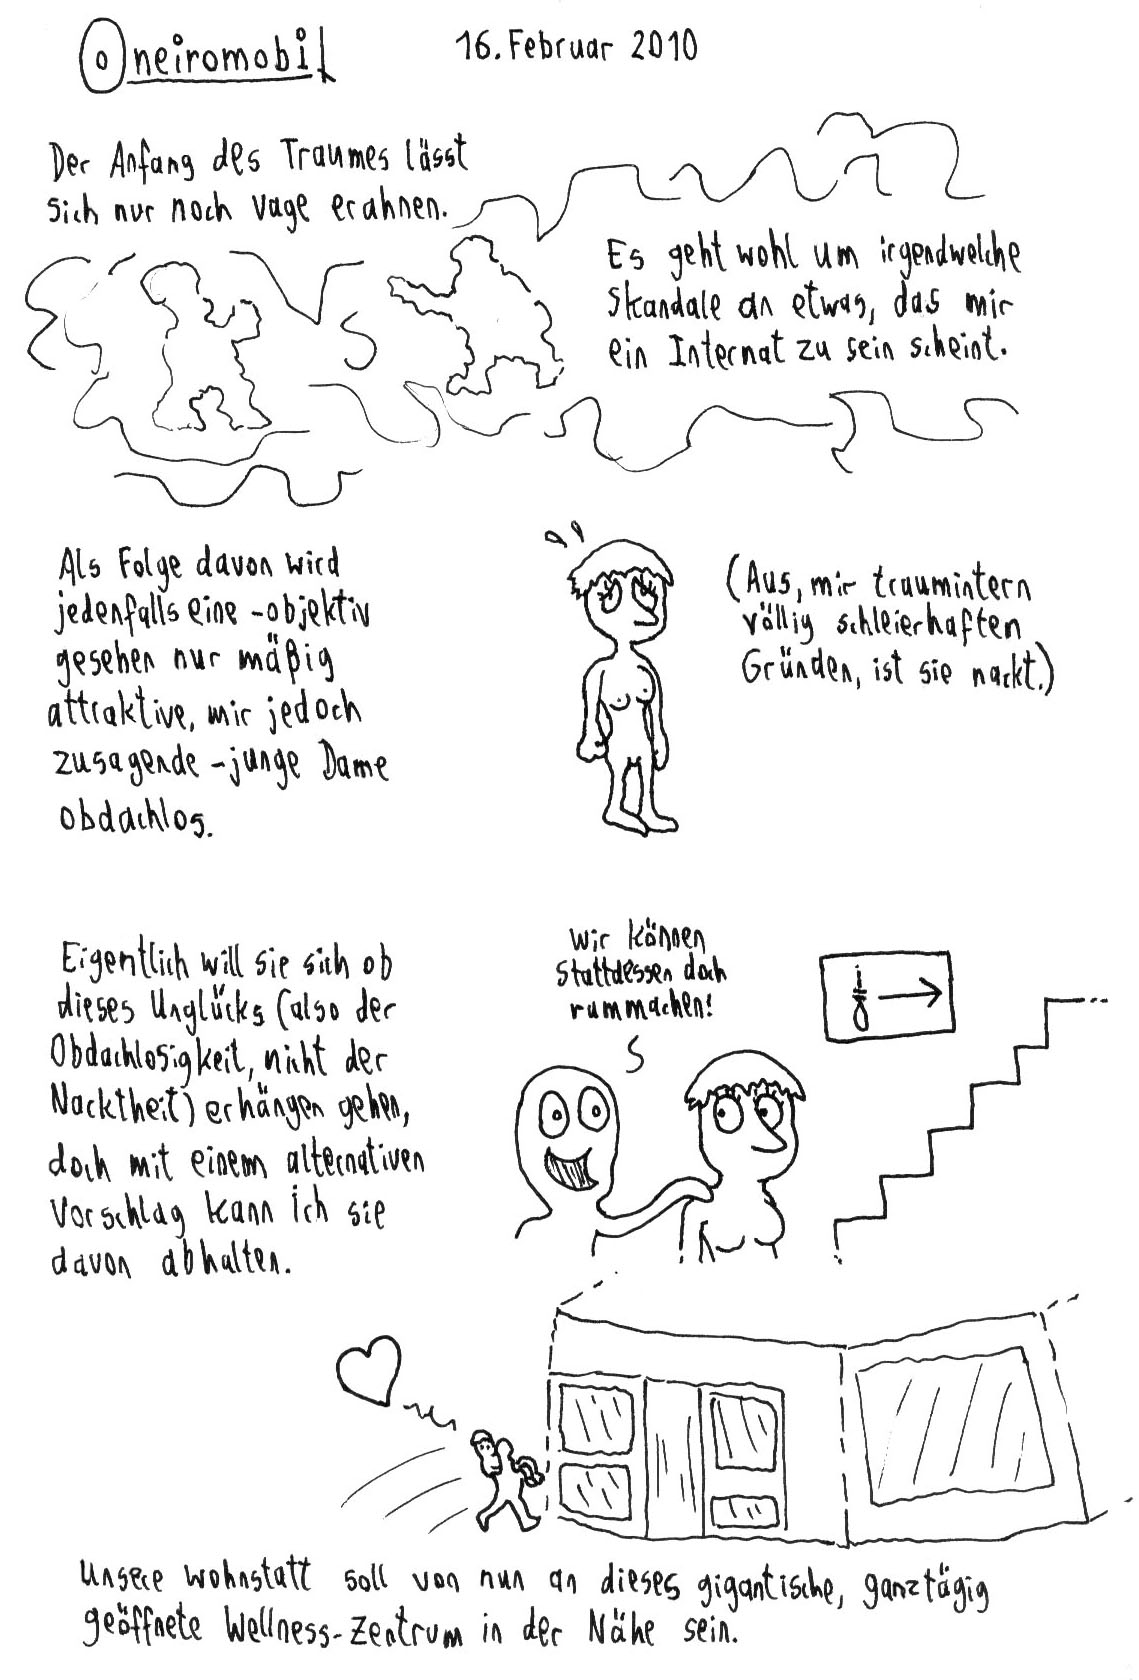 Oneiromobil
16. Februar 2010
Der Anfang des Traumes lässt
sich nur noch vage erahnen.
Es geht wohl um irgendwelche
Skandale an etwas, das mir
ein Internat zu sein scheint.
Als Folge davon wird
jedenfalls eine -objektiv
gesehen nur mäßig
attraktive, mir jedoch
zusagende -junge Dame
obdachlos.
(Aus, mir traumintern
völlig schleierhaften
Gründen, ist sie nackt.)
Eigentlich will sie sich ob
dieses Unglücks (also der
Obdachlosigkeit, nicht der
Nacktheit) erhängen gehen,
doch mit einem alternativen
Vorschlag kann ich sie
davon abhalten.
Wir können
stattdessen doch
rummachen!
Unsere Wohnstatt soll von nun an dieses gigantische, ganztägig
geöffnete Wellness-Zentrum in der Nähe sein.